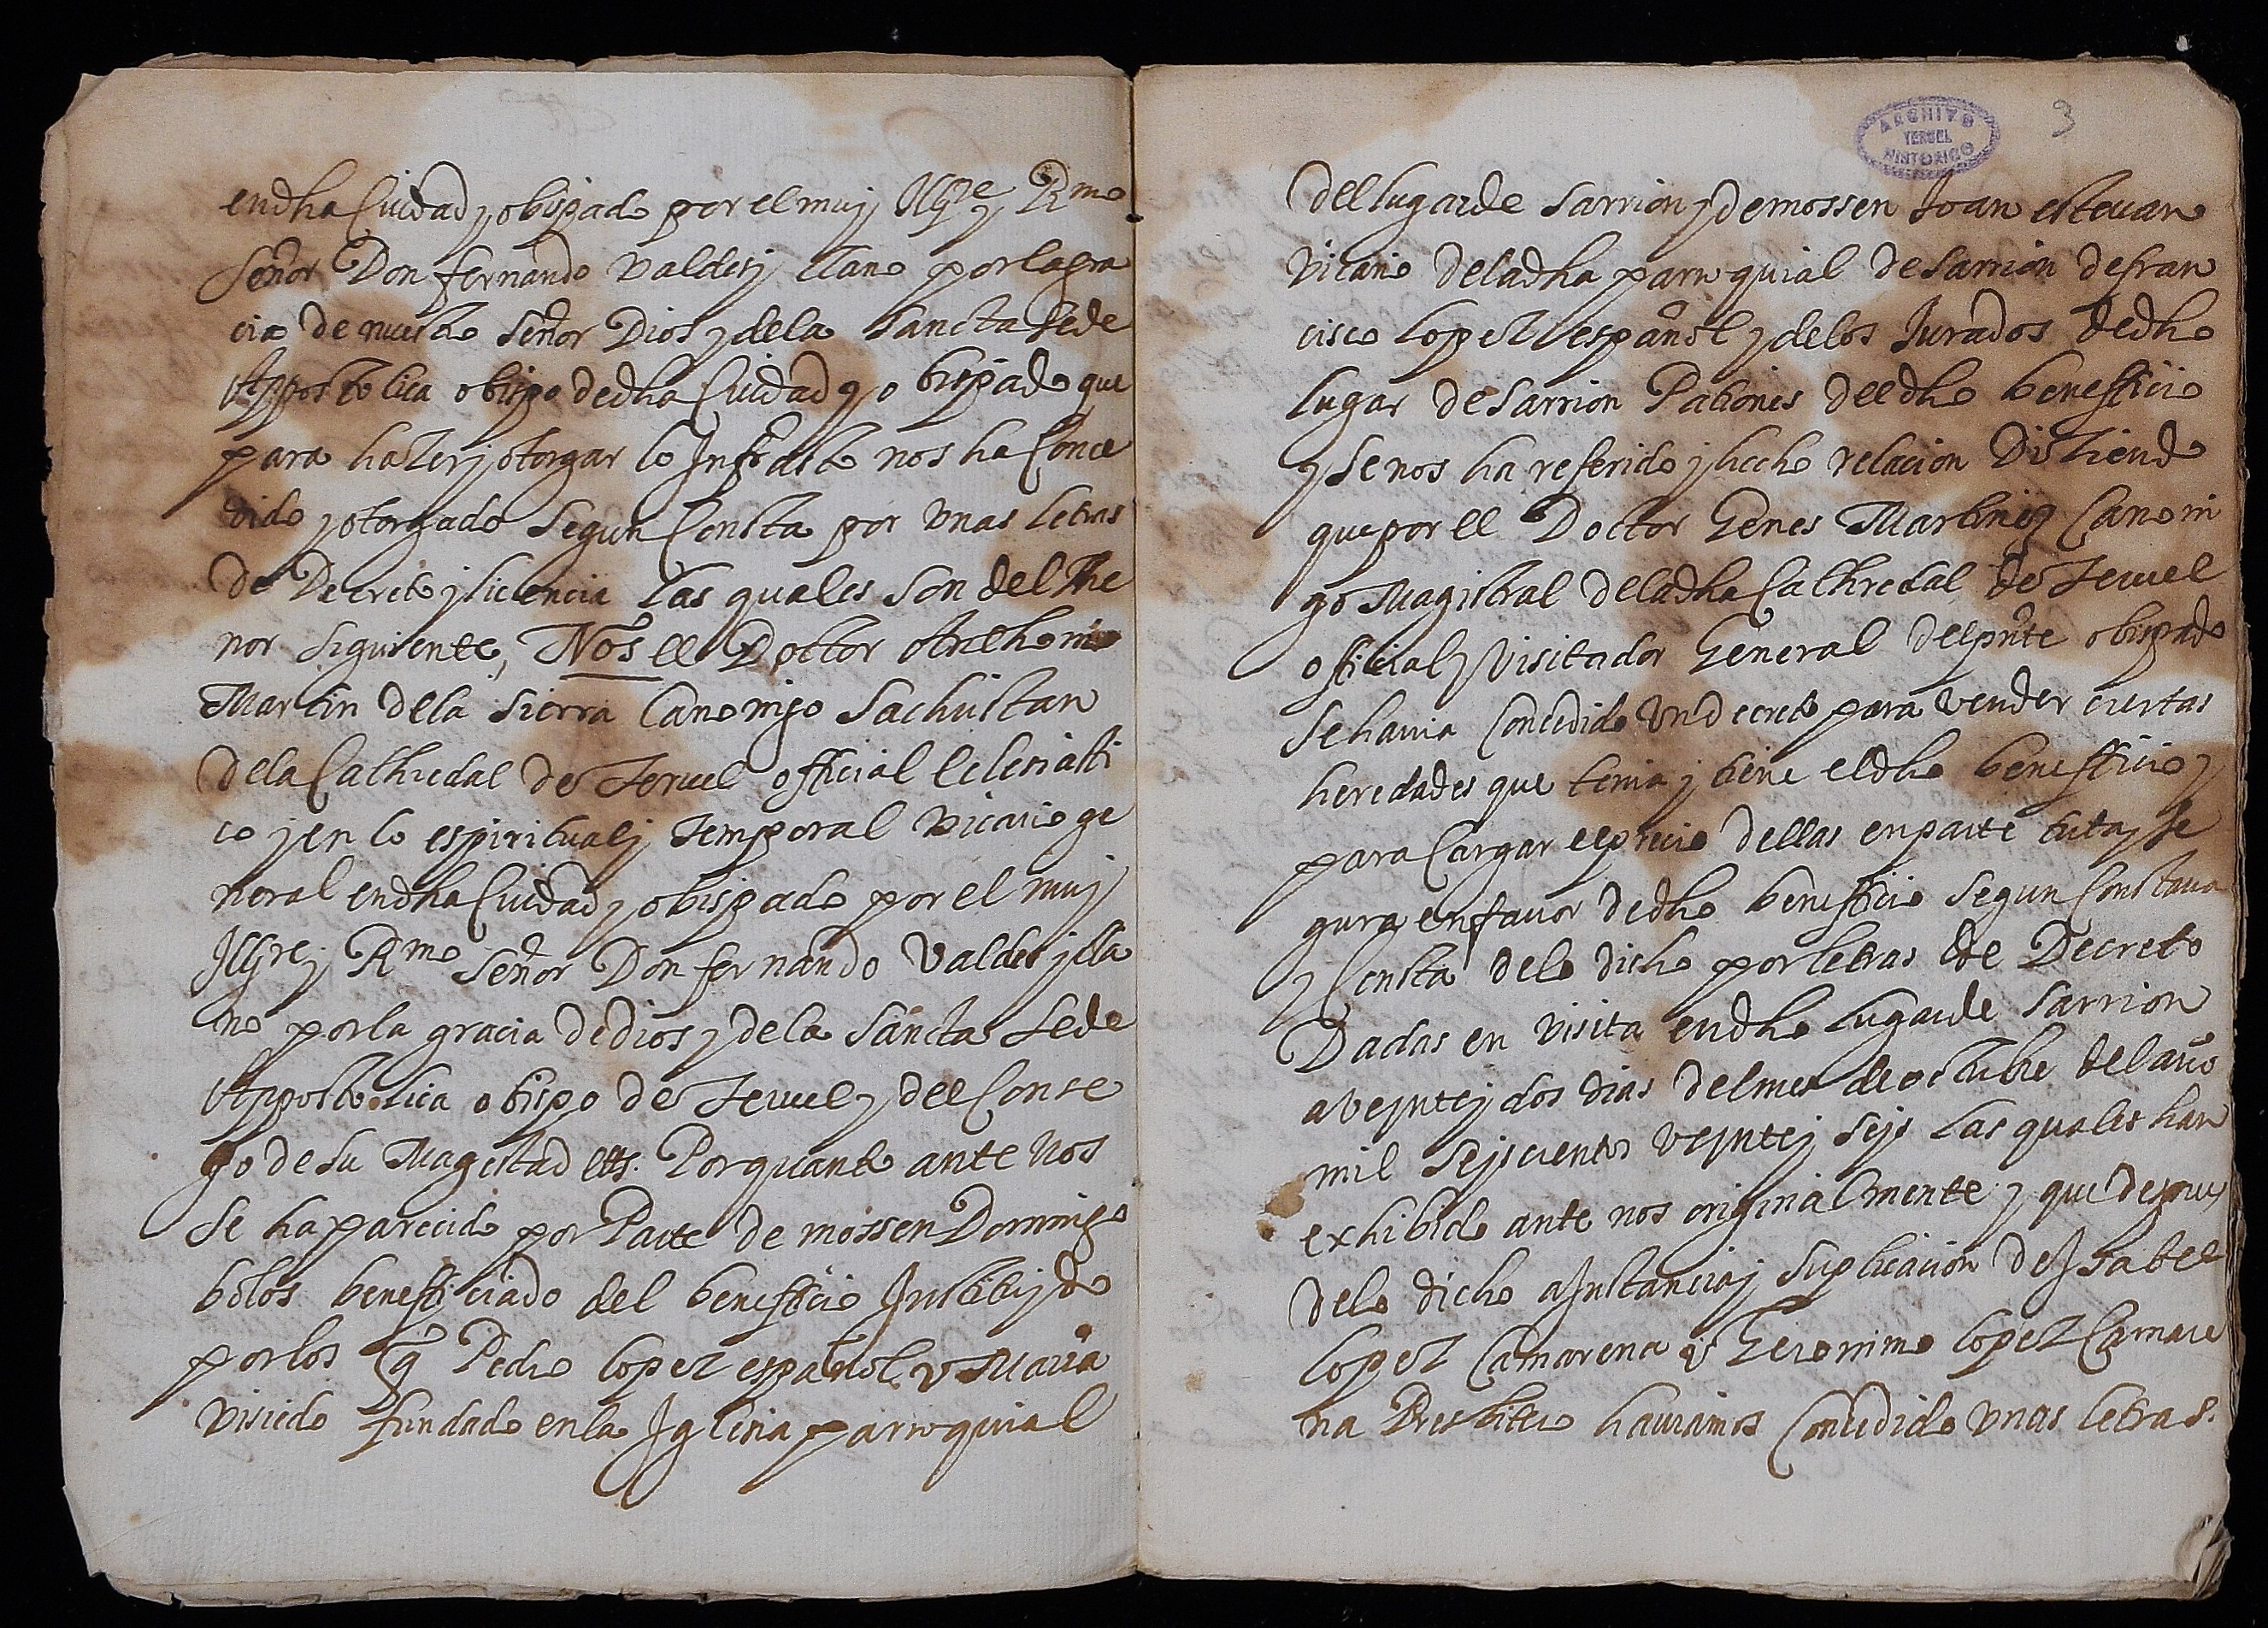 en dha Ciudad y obispado por el muy Illre y Rmo
Señor Don fernando Valdes y llano por la gra
cia de nuestro Señor Dios y de la Sancta Sede
Appostolica obispo de dha Ciudad y obispado que
para hazer y otorgar lo Infrascto nos ha Conce
dido y otorgado Segun Consta por vnas letras
de Decreto y licencia las quales son del The
nor siguiente, Nos el Doctor Anthonio
Martin de la Sierra Canonigo Sachristan
de la Cathredal de Teruel official Eclesiasti
co y en lo espiritual y Temporal vicario ge
neral en dha Ciudad y obispado por el muy
Illre y Rmo Señor Don fernando Valdes y lla
no por la gracia de dios y de la Sancta Sede
Appostolica obispo de Teruel y del Conse
jo de Su Magestad etts. Por quanto ante Nos
Se ha parecido por Parte de mossen Domingo
bolos benefficiado del benefficio Instituydo
por los qº Pedro lopez español y Maria
visiedo fundado en la Iglesia parroquial
ARCHIVO
TERUEL
HISTORICO
3
del lugar de Sarrion y de mossen Joan esteuan
Vicario de la dha parroquial de Sarrion de fran
cisco lopez español y de los Jurados de dho
lugar de Sarrion Patrones del dho benefficio
y Se nos ha referido y hecho relacion Diziendo
que por el Doctor Genes Martinez Canoni
go Magistral de la dha Cathredal de Teruel
official y Visitador General del pnte obispado
Se hauia Concedido Vn decreto para vender ciertas
heredades que tenia y tiene el dho benefficio y
para Cargar el precio dellas en parte tuta y Se
gura en fauor de dho benefficio Segun Constaua
y Consta de lo dicho por letras de Decreto
Dadas en visita en dho lugar de Sarrion
a veynte y dos dias del mes de octubre del año
mil Seyscientos veynte y seys las quales han
exhibido ante nos originalmente y que despues
de lo dicho a Instancia y Suplicacion de Isabel
lopez Camarena y Geronimo lopez Camare
na Presbitero hauiamos Concedido vnas letras.